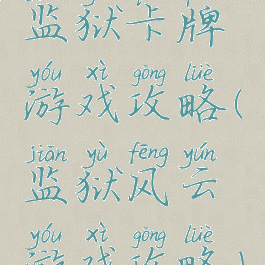 监狱卡牌
yóu xì gōng lüè
游戏攻略(
jiān yù fēng yún
监狱风云
yóu xì gōng lüè
游戏攻略)